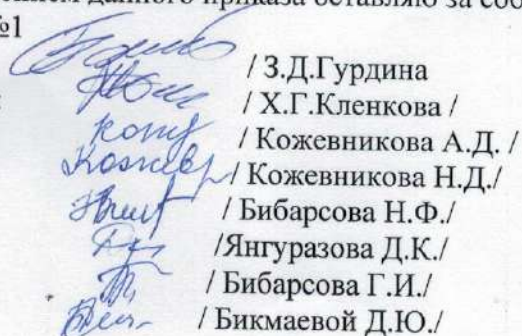 нием данного приказа оставляю за соб
№1
/ З.Д.Гурдина
/ Х.Г.Кленкова /
/ Кожевникова А.Д. /
Кожевр / Кожевникова Н.Д./
/ Бибарсова Н.Ф./
/Янгуразова Д.К./
/ Бибарсова Г.И./
/ Бикмаевой Д.Ю./